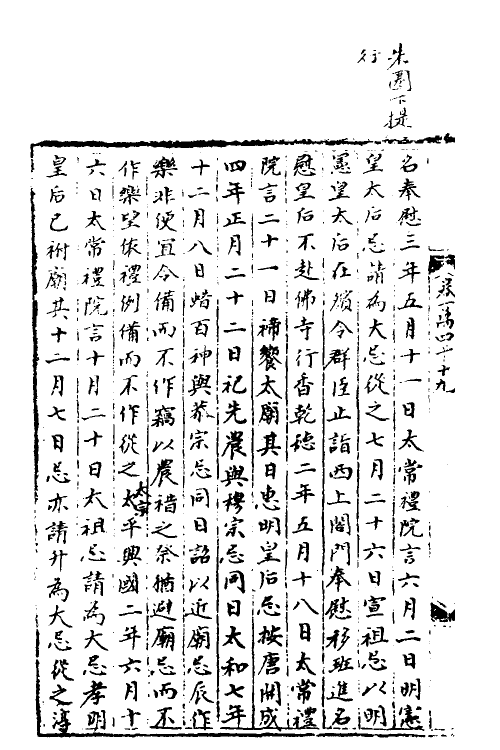 朱圈下提
行
卷一萬四千十九
名奉慰三年五月十一日太常禮院言六月二日明憲
皇太后忌請為大忌從之七月二十六日宣祖忌以明
憲皇太后在殯令群臣止詣西上閤門奉慰移班進名
慰皇后不赴佛寺行香乾德二年五月十八日太常禮
院言二十一日禘饗太廟其日惠明皇后忌按唐開成
四年正月二十二日祀先農與穆宗忌同日太和七年
十二月八日蜡百神與敬宗忌同日詔以近廟忌辰作
樂非便宜令備而不作竊以農禖之祭猶避廟忌而不
作樂望依禮例備而不作從之太宗太平興國二年六月十
六日太常禮院言十月二十日太祖忌請為大忌孝明
皇后已祔廟其十二月七日忌亦請升為大忌從之淳